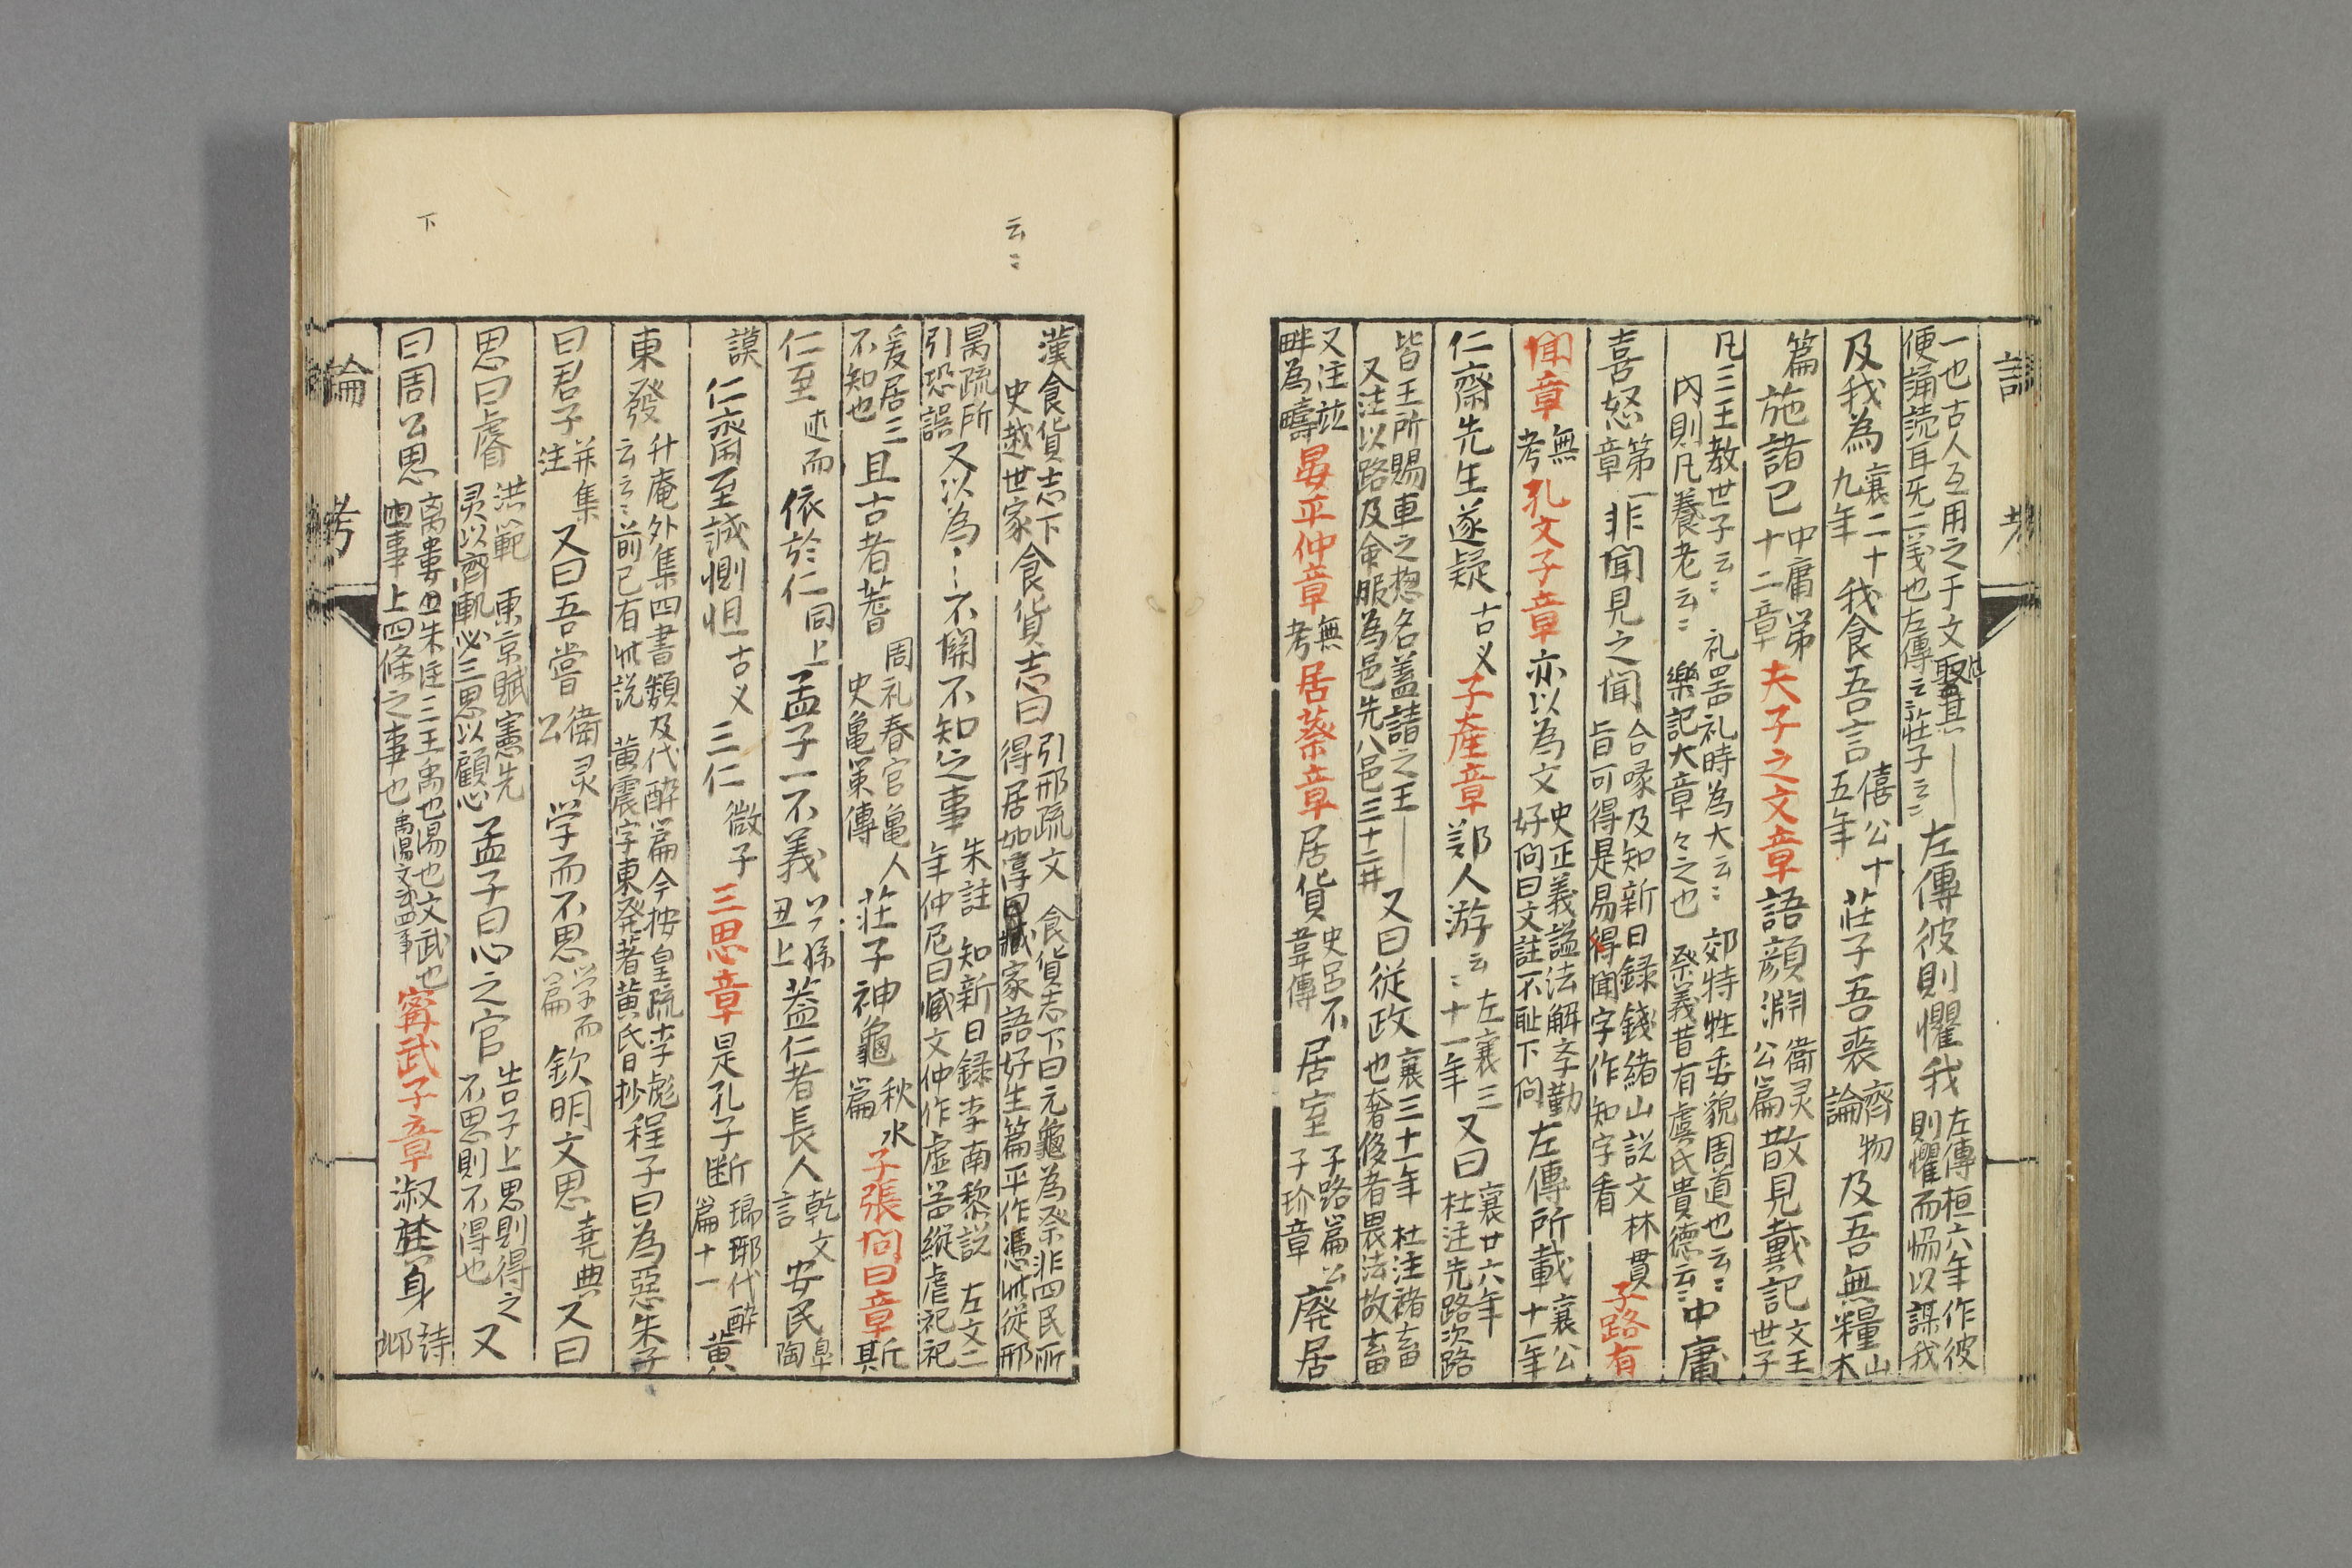 一也古人互用之于文
便誦読耳死二義也左傳云莊子云〻
左傳彼則懼我
左傳桓六年作彼
則懼而協以謀我
及我為
襄二十
九年
我食吾言
僖公十
五年
莊子吾喪
齊物
論
及吾無糧
山
木
篇施諸已
中庸第
十二章
夫子之文章
語顔淵
衛灵
公篇
散見戴記
文王
世子
凡三王教世子云〻 礼噐礼時為大云〻 郊特牲委貌周道也云〻
内則凡養老云〻 樂記大章々之也 祭義昔有虞氏貴徳云〻
中庸
喜怒
第一
章
非聞見之聞
合喙及知新日録錢緒山説文林貫
旨可得是易得聞字作知字看
子路有
聞章
無
考
孔文子章
亦以為文
史正義謚法解李勤
好问曰文註不耻下问
左傳所載
襄公
十一年
仁齋先生遂疑
古义
子産章
鄭人游
云
〻
左襄三
十一年
又曰
襄廿六年
杜注先路次路
皆王所賜車之揔名蓋請之王
又注以路及命服為邑先八邑三十二井
又曰從政
襄三十一年 杜注禇畜
也奢侈者畏法故畜
又注竝
畔為疇
晏平仲章
無
考
居蔡章
居貨
史呂不
韋傳
居室
子路篇公
子珍章
廃居
云〻
漢食貨志下
史越世家
食貨志曰
引邢疏文 食貨志下曰元龜為祭非四民所
得居如淳曰臧家語好生篇平作馮此從邢
昺疏所
引恐誤
又以為〻不関不知之事
朱註 知新日録李南黎説 左文二
年仲尼曰臧文仲作虚噐縦虐祀祀
爰居三
不知也
且古者蓍
周礼春官亀人
史亀策傳
莊子神龜
秋水
篇
子張问曰章
斤
其
仁至
述而
依於仁
同上
孟子一不義
公孫
丑上
蓋仁者長人
乾文
言
安民
皐
陶
謨
仁齋至誠惻怛
古义
三仁
微子
三思章
是孔子断
瑯琊代酔
篇十一
黄
東發
升庵外集四書類及代酔篇今按皇疏李彪
云云〻前已有此説 黄震字東発著黄氏日抄
程子曰為惡朱子
曰君子
并集
注
又曰吾嘗
衛灵
公
学而不思
学而
篇
欽明文思
堯典
又曰
思曰睿
洪範 東京賦憲先
灵以齊軌必三思以顧心
孟子曰心之官
告子上思則得之
不思則不得也
又
下
曰周公思
离婁丑朱注三王禹也湯也文武也
四事上四條之事也
禹湯文武四事
寗武子章
淑其身
詩
邶
論 考